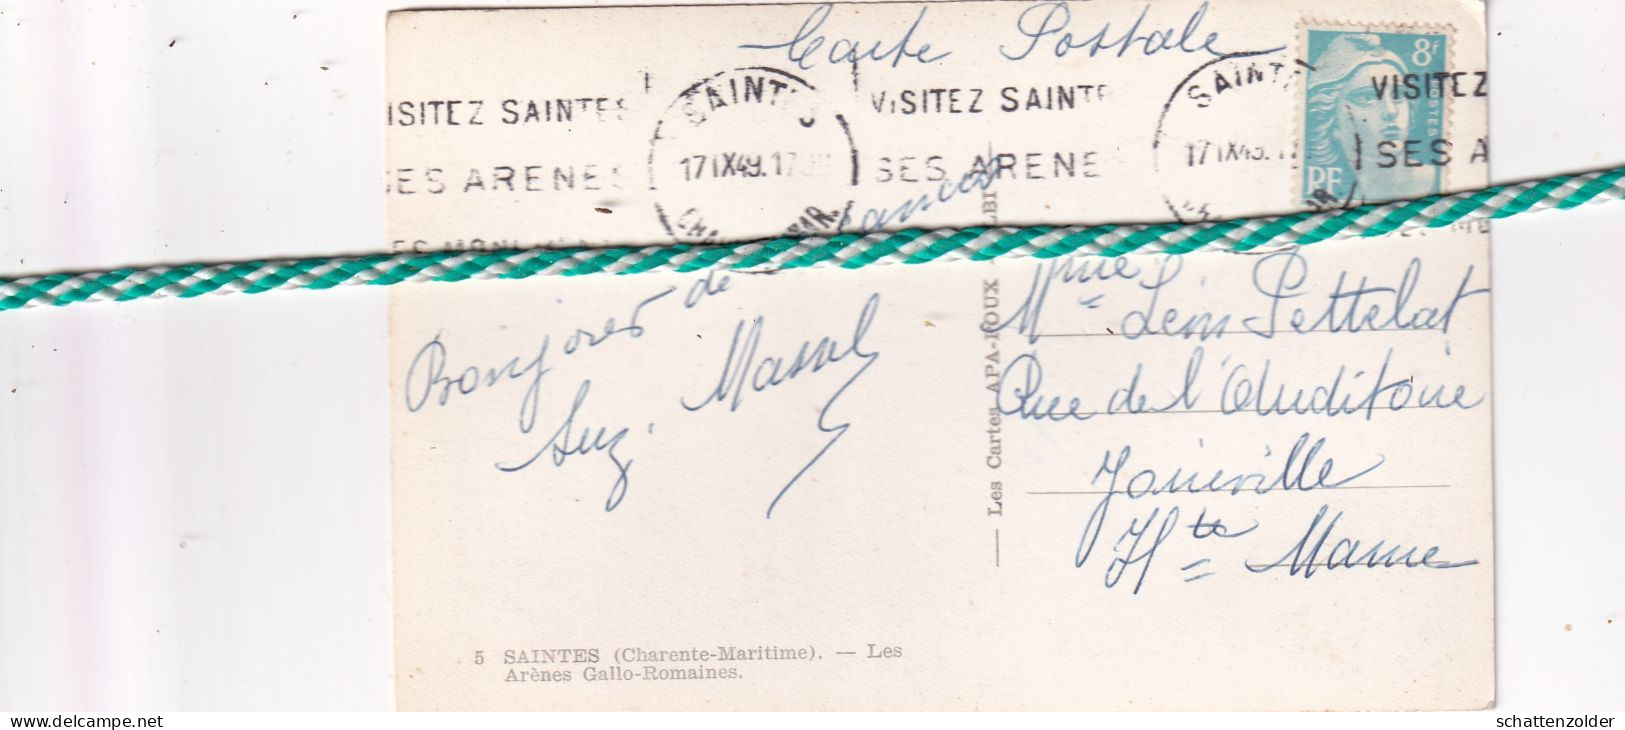 Carte Postale
8f
POSTES
PF
VISITEZ SAINTES
SES ARENES
SAINTES
17 IX 49.17
VISITEZ SAINT
SES ARENE
SAINTE
17 IX 49.17
VISITEZ
SES A
Bonjour de
Suz. Massol
Mme Léon Pettelat
Rue de l'Auditoire
Joinville
Hte Marne
— Les Cartes APA-POUX
5 SAINTES (Charente-Maritime). — Les
Arènes Gallo-Romaines.
www.delcampe.net
schattenzolder